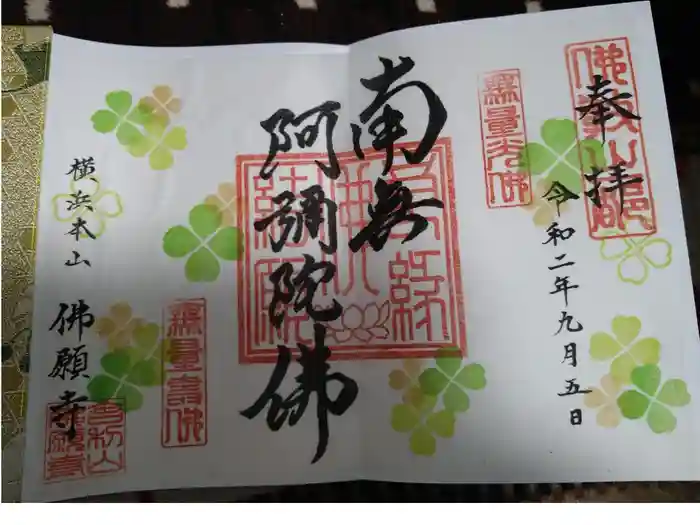 奉拝
令和二年九月五日
無量光佛
南無
阿彌陀佛
無量壽佛
横浜本山
佛願寺